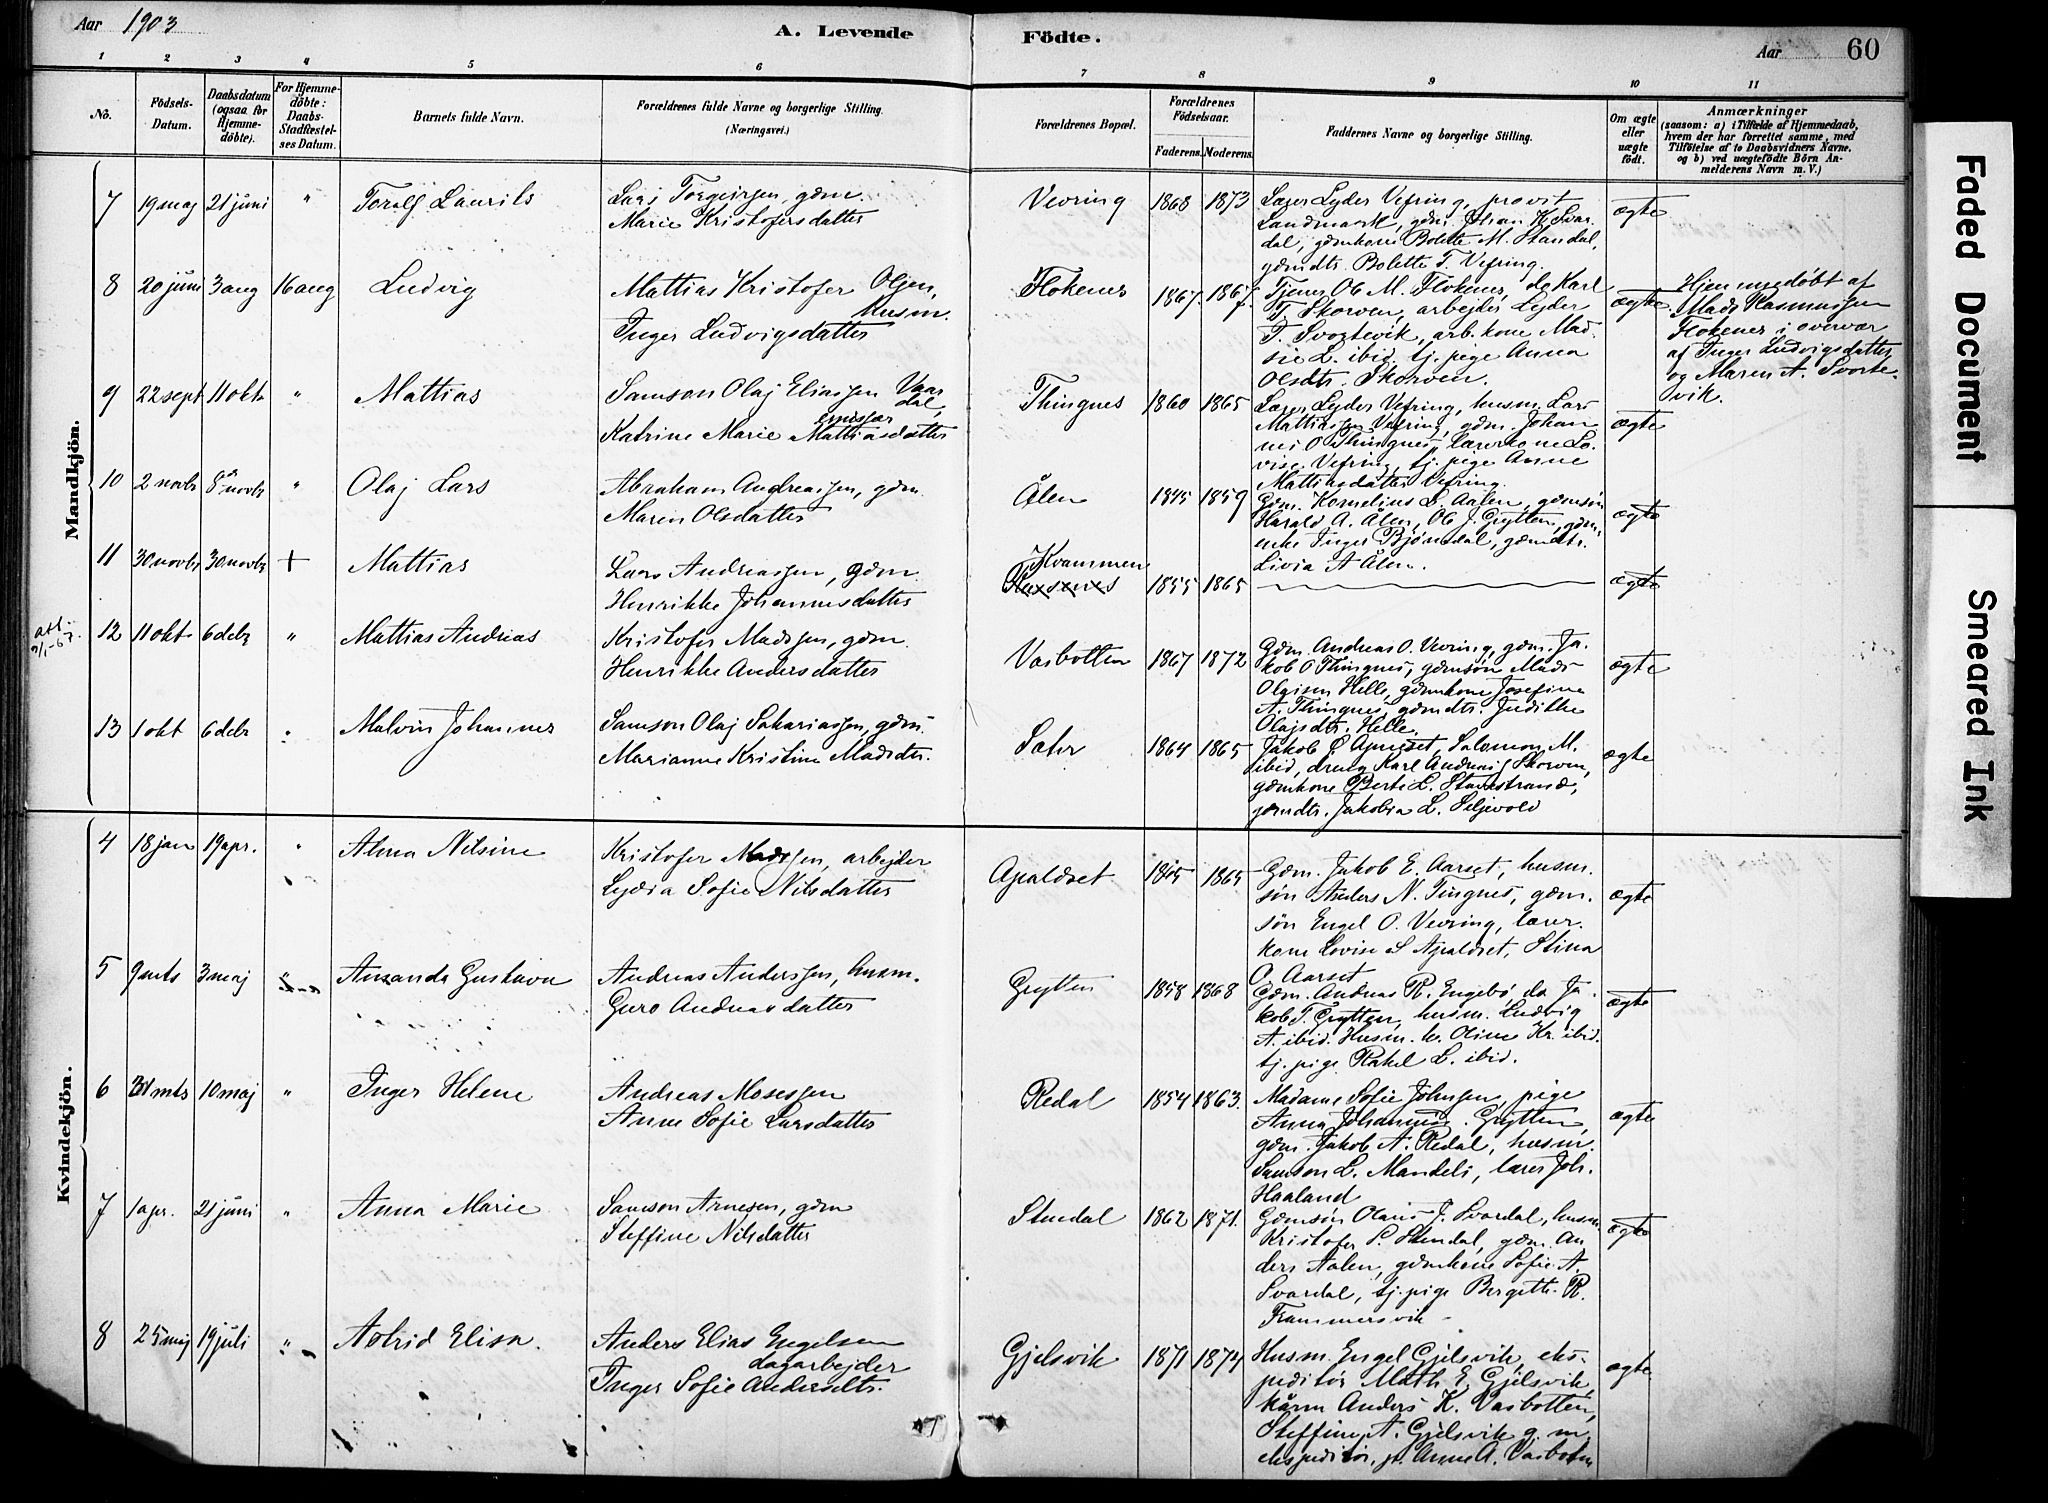 Aar 1903
A. Levende Födte.
Aar 60
1 2 3 4 5 6 7 8 9 10 11
No.
Födsels-Datum.
Daabsdatum (ogsaa for Hjemme-döbte).
For Hjemme-döbte: Daabs-Stadfæstel-ses Datum.
Barnets fulde Navn.
Forældrenes fulde Navne og borgerlige Stilling.
(Næringsvei.)
Forældrenes Bopæl.
Forældrenes Födselsaar.
Faderens. Moderens.
Faddernes Navne og borgerlige Stilling.
Om ægte eller uægte födt.
Anmærkninger
(saasom: a) i Tilfælde af Hjemmedaab,
hvem der har forrettet samme, med
Tilföielse af to Daabsvidners Navne.
og b) ved uægtefödte Börn An-
melderens Navn m. V.)
Mandkjön.
7 19 maj 21 juni " Toralf Laurits
Lars Torgeirsen, gdm.
Marie Kristofersdatter
Vevring 1868 1873
Lærer Lejder Vefring, provit
Landmark, gdm. Johan K. Svar-
dal, gdmkone Bolette M. Standal,
gdmdtr. Bolette T. Vefring.
ægte
8 20 juni 3 aug 16 aug Ludvig
Mattias Kristofer Olsen,
Husm.
Inger Ludvigsdatter
Flokenes 1867. 1867.
Tjener Ob M. Flokenes, do Karl
T. Skorven, arbejder Lejder
T. Svortevik, arb. kone Mad-
sie L. ibid. tj. pige Anna
Olsdtr. Skorven.
ægte
Hjemmedøbt af
Mads Rasmussen
Flokenes i overvær
af Inger Ludvigsdatter
og Maren A. Svorte-
vik.
9 22 sept 11 okt " Mattias
Samson Olaj Eliassen Vaar
dal,
emissær
Katrine Marie Mattiasdatter
Thingnes 1860 1865
Lærer Lejder Vefring, husm. Lars
Mattiassen Vefring, gdm. Johan
nes O Thingnes, lærerkone Lo-
vise Vefring, tj. pige Anne
Mattiasdatter Vefring.
ægte
10 2 novbr 8 novbr " Olaj Lars
Abraham Andreassen, gdm.
Maren Olsdatter
Ålen 1845 1859
Gdm. Kornelius L. Aalen, gdmsøn
Harald A. Ålen, Ob J. Grytten, gdm-
enke Inger Bjørndal, gdmdtr.
Livia A Ålen.
ægte
11 30 novbr 30 novbr + Mattias
Lars Andreassen, gdm.
Henrikke Johannesdatter
Kvammen
1855 1865
ægte
12 11 okt 6 debr " Mattias Andreas
Kristofer Madssen, gdm.
Henrikke Andersdatter
Vasbotten 1867 1872
Gdm. Andreas O. Vevring, gdm. Ja-
kob O Thingnes, gdmsøn Mads
Olaisen Helle, gdmkone Josefine
A. Thingnes, gdmdtr. Judikke
Olajsdtr. Helle.
ægte
13 1 okt 6 debr " Malvin Johannes
Samson Olaj Sakariassen, gdm.
Marianne Kristine Madsdtr.
Sætr 1864 1865
Jakob E. Apneset, Salomon M.
ibid, dreng Karl Andreas Skorven,
gdmkone Berte L. Stavestrand,
gdmdtr. Jakobia L. Seljevold
ægte
Kvindekjön.
4 18 jan 19 apr. " Alma Nilsine
Kristofer Madssen, arbejder
Lydia Sofie Nilsdatter
Apaldset 1865
Gdm. Jakob E. Aarset, husm.
søn Anders N. Tingnes, gdm.
søn Engel O. Vevring, lærer
kone Lovise S Apaldset, Stina
O. Aarset
ægte
5 9 mts 3 maj " Amanda Gustava
Andreas Anderssen, husm.
Guro Andreasdatter
Grytten 1858 1868
Gdm. Andreas R. Engebø, do Ja-
kob T. Grytten, husm. Ludvig
A. ibid. Husm. k. Oline Kr. ibid.
tj. pige Rakel L. ibid.
ægte
6 31 mts 10 maj " Inger Helene
Andreas Mosessen
Anne Sofie Larsdatter
Redal 1854 1863.
Madame Sofie Johnsen, pige
Anna Johannesd. Grytten,
gdm. Jakob A. Redal, husm.
Samson L. Mandels, lærer Joh.
Haaland
ægte
7 1 apr. 21 juni " Anna Marie
Samson Arnesen, gdm
Steffine Nilsdatter
Stendal 1862 1871.
Gdmsøn Olaus J. Svardal, husm.
Kristofer S. Stendal, gdm. An-
ders Aalen, gdmkone Sofie A.
Svardal, tj. pige Bergitte R.
Frammersvik
ægte
8 25 maj 19 juli " Astrid Elisa.
Anders Elias Engelsen
dagarbejder
Inger Sofie Andersdtr.
Gjelsvik 1871 1874
Husm. Engel Gjelsvik, eks-
peditør Math E. Gjelsvik,
kårm Anders K. Vasbotten,
Steffine A. Gjelsvik g. m.
ekspeditør, p. Anne A. Vasbotn
ægte
Faded Document
Smeared Ink